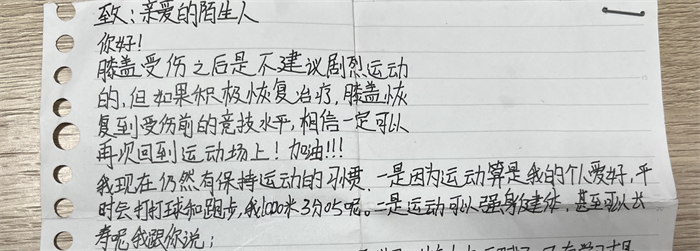 致：亲爱的陌生人
你好！
膝盖受伤之后是不建议剧烈运动
的，但如果积极恢复治疗，膝盖恢
复到受伤前的竞技水平，相信一定可以
再次回到运动场上！加油!!!
我现在仍然有保持运动的习惯，一是因为运动算是我的个人爱好，平
时会打打球和跑步，我1000米3分05呢。二是运动可以强身健体，甚至可以长
寿呢，我跟你说；